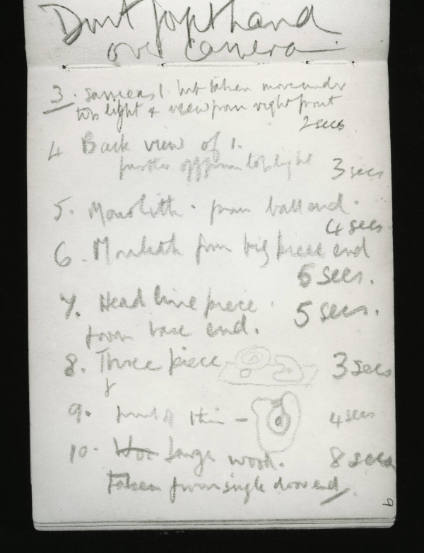 Dont forget hand
over camera.
3. same as 1. but taken more under
top light & view from right front
2 secs
4 Back view of 1.
further off from top light 3 secs
5. Monolith. from ball end.
4 secs
6. Monolith from big piece end
5 secs.
7. Head line piece. 5 secs.
from base end.
8. Three piece 3 secs
9. front of thin - 4 secs
10. Large wood. 8 secs
Taken from single door end.
9